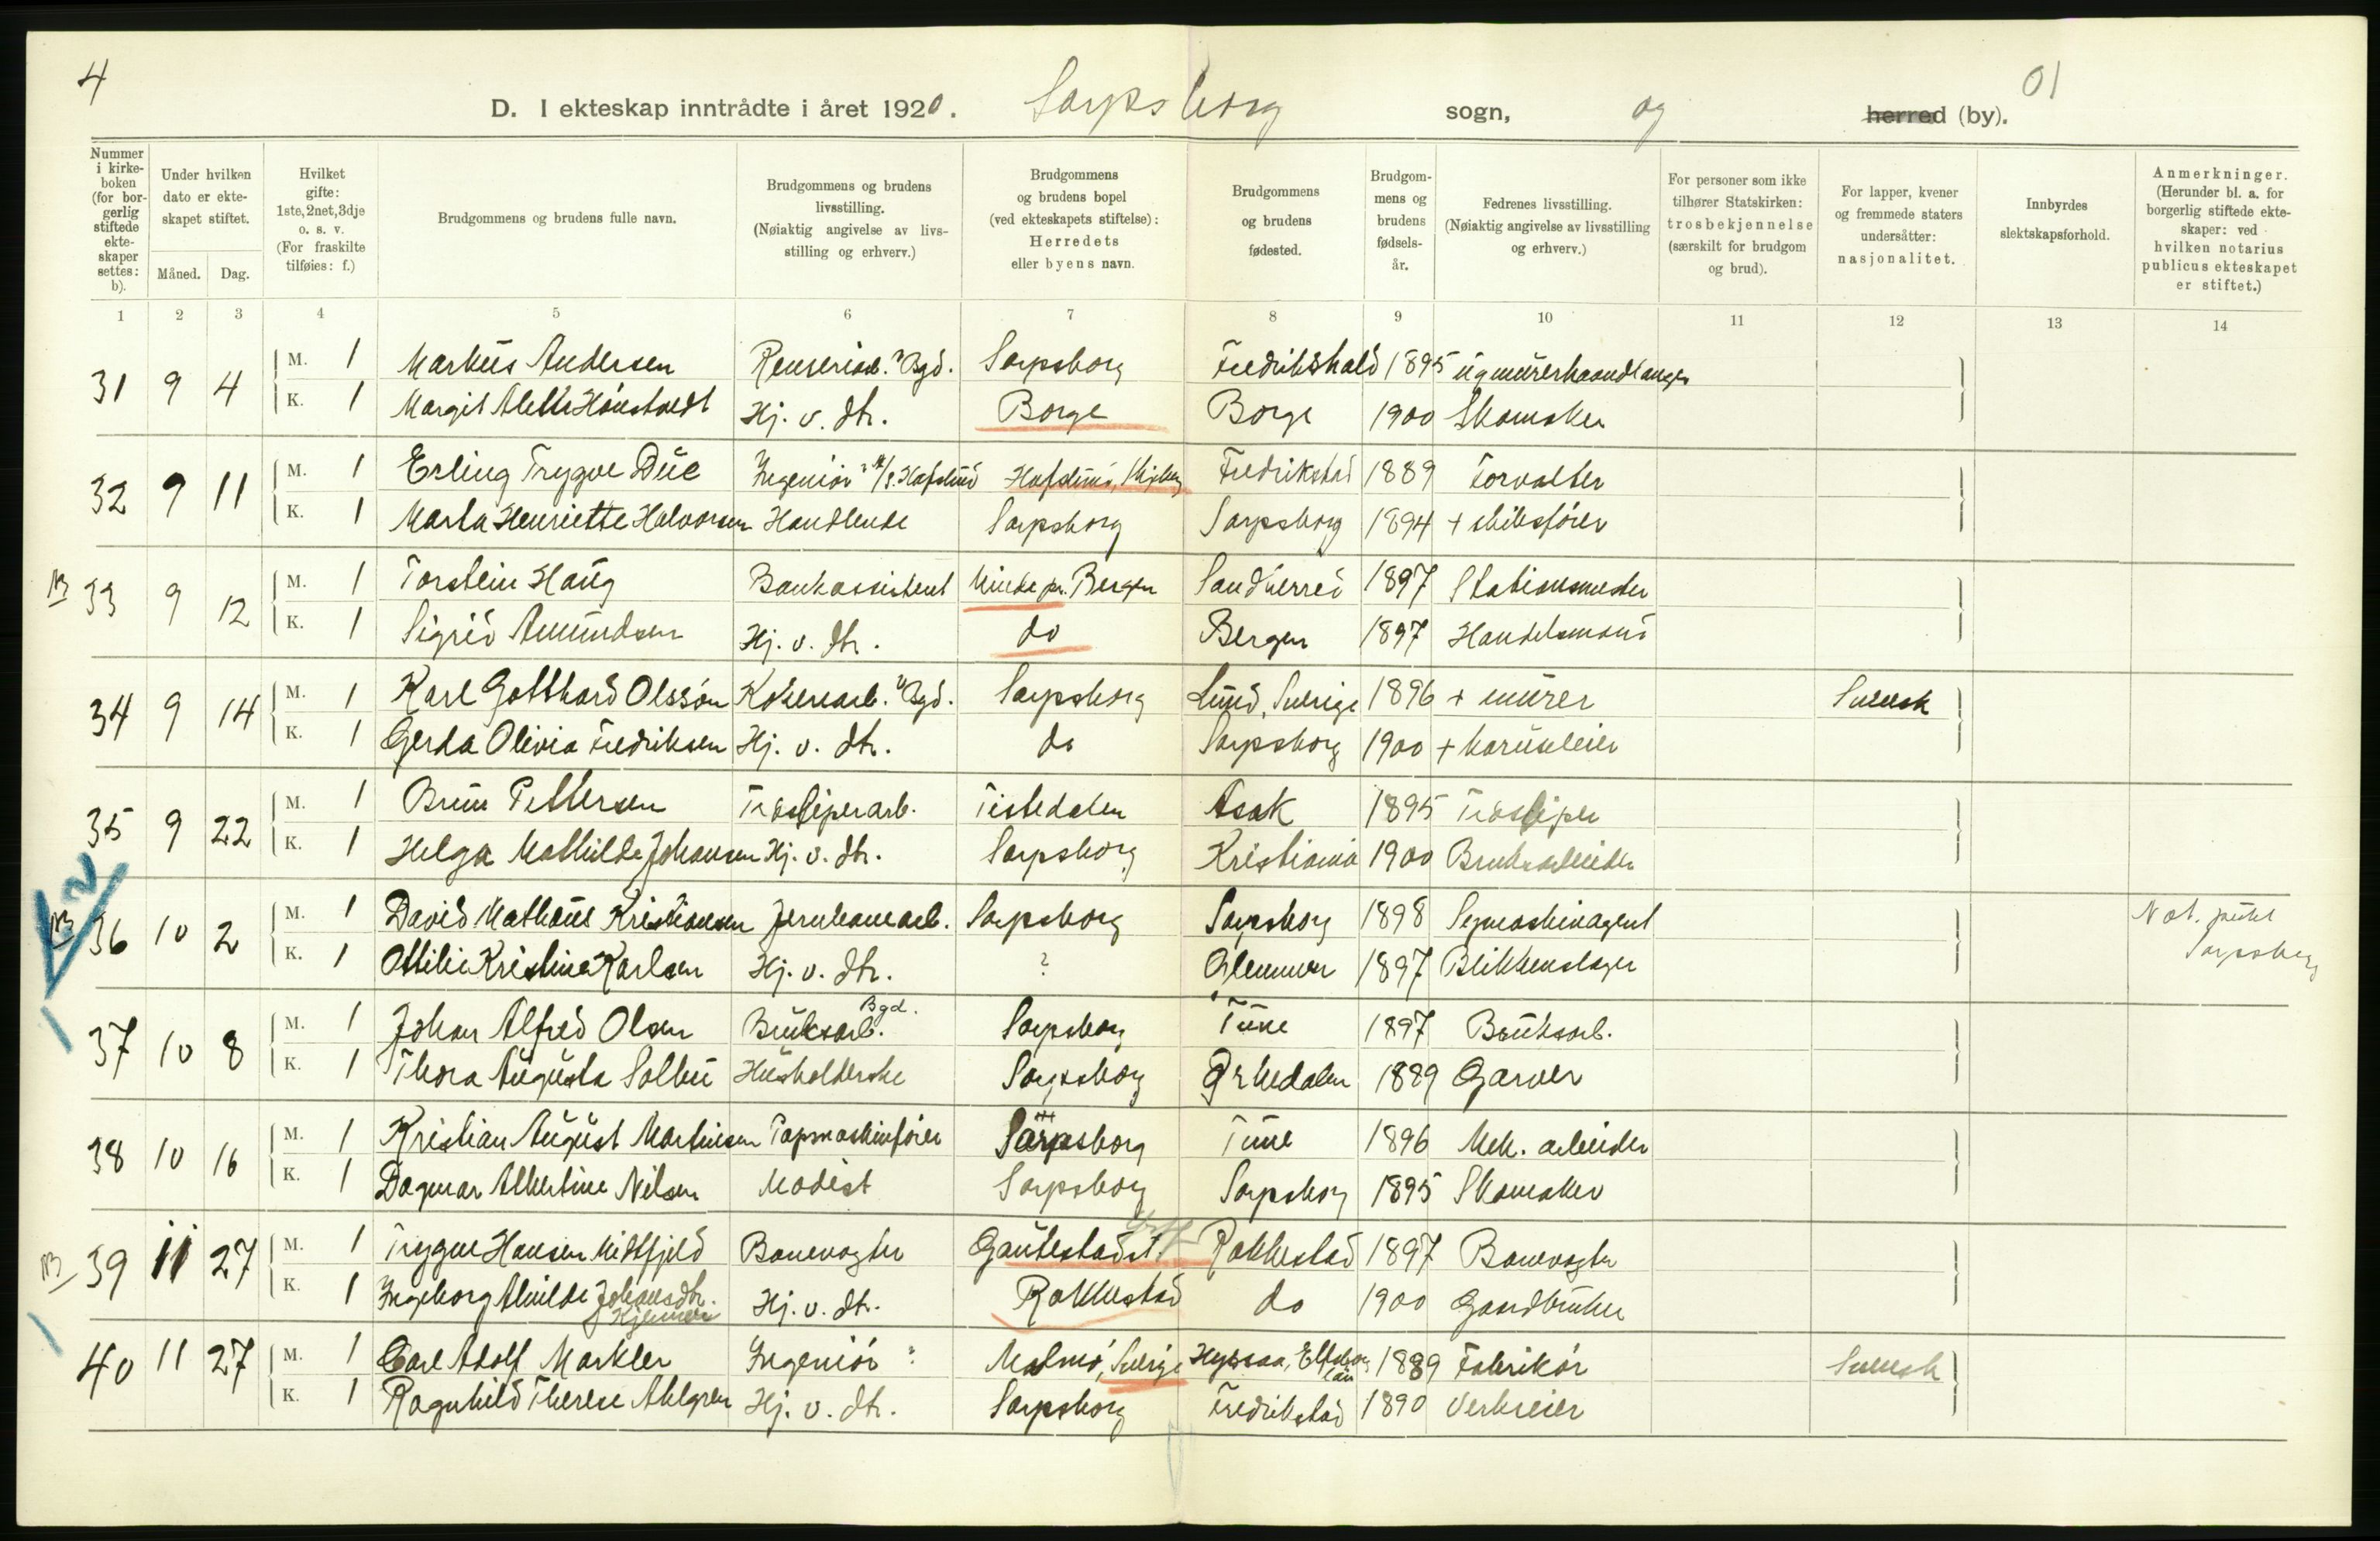 4
D. I ekteskap inntrådte i året 1920. Sarpsborg sogn, og herred (by). 01
Nummer i kirkeboken (for borgerlig stiftede ekteskaper settes: b).
Under hvilken dato er ekteskapet stiftet.
Måned. Dag.
Hvilket gifte: 1ste, 2net, 3dje o. s. v. (For fraskilte tilføies: f.)
Brudgommens og brudens fulle navn.
Brudgommens og brudens livsstilling. (Nøiaktig angivelse av livsstilling og erhverv.)
Brudgommens og brudens bopel (ved ekteskapets stiftelse): Herredets eller byens navn.
Brudgommens og brudens fødested.
Brudgommens og brudens fødselsår.
Fedrenes livsstilling. (Nøiaktig angivelse av livsstilling og erhverv.)
For personer som ikke tilhører Statskirken: trosbekjennelse (særskilt for brudgom og brud).
For lapper, kvener og fremmede staters undersåtter: nasjonalitet.
Innbyrdes slektskapsforhold.
Anmerkninger. (Herunder bl. a. for borgerlig stiftede ekteskaper: ved hvilken notarius publicus ekteskapet er stiftet.)
1 2 3 4 5 6 7 8 9 10 11 12 13 14
31 9 4 M. 1 Markus Andersen Renseriarb. Bgd. Sarpsborg Fredrikshald 1895 murerhaandlanger
K. 1 Margit Alette Hj. v. dtr. Borge Borge 1900 Skomaker
32 9 11 M. 1 Erling Trygve Due Ingeniør Hafslund Hafslund, Skjeberg Fredrikstad 1889 Forvalter
K. 1 Marta Henriette Halvorsen Handlende Sarpsborg Sarpsborg 1894 + skibsfører
33 9 12 M. 1 Torstein Haug Bankassistent Minde pr. Bergen Sandherred 1897 Stationsmester
K. 1 Sigrid Amundsen Hj. v. dtr. do Bergen 1897 Handelsmand
34 9 14 M. 1 Karl Gotthard Olsson Kokeriarb. Bgd. Sarpsborg Lund, Sverige 1896 + murer Svensk
K. 1 Gerda Olivia Fredriksen Hj. v. dtr. do Sarpsborg 1900 +
35 9 22 M. 1 Brun Pettersen Træsliperarb. Tistedalen Asak 1895 Træsliper
K. 1 Helga Mathilde Johansen Hj. v. dtr. Sarpsborg Kristiania 1900 Bruksarbeider
36 10 2 M. 1 David Mathæus Kristiansen Jernbanearb. Sarpsborg Sarpsborg 1898 Symaskinagent Not. publ
Sarpsborg
K. 1 Ottilie Kristine Karlsen Hj. v. dtr. ? Glemmen 1897 Blikkenslager
37 10 8 M. 1 Johan Alfred Olsen Bruksarb. Bgd. Sarpsborg Tune 1897 Bruksarb.
K. 1 Thora Augusta Solbu Husholderske Sarpsborg Orkedalen 1889 Garver
38 10 16 M. 1 Kristian August Martinsen Papmaskinfører Sarpsborg Tune 1896 Mek. arbeider
K. 1 Dagmar Albertine Nilsen Modist Sarpsborg Sarpsborg 1895 Skomaker
39 11 27 M. 1 Trygve Hansen Midtfjeld Banevogter Gautestad st. Rakkestad 1897 Banevogter
K. 1 Ingeborg Alvilde Johansdtr. Hj. v. dtr. Rakkestad do 1900 Gaardbruker
40 11 27 M. 1 Carl Adolf Markler Ingeniør ? Malmø, Sverige Elfsborg län 1889 Fabrikør Svensk
K. 1 Ragnhild Therese Ahlgren Hj. v. dtr. Sarpsborg Fredrikstad 1890 Verkseier